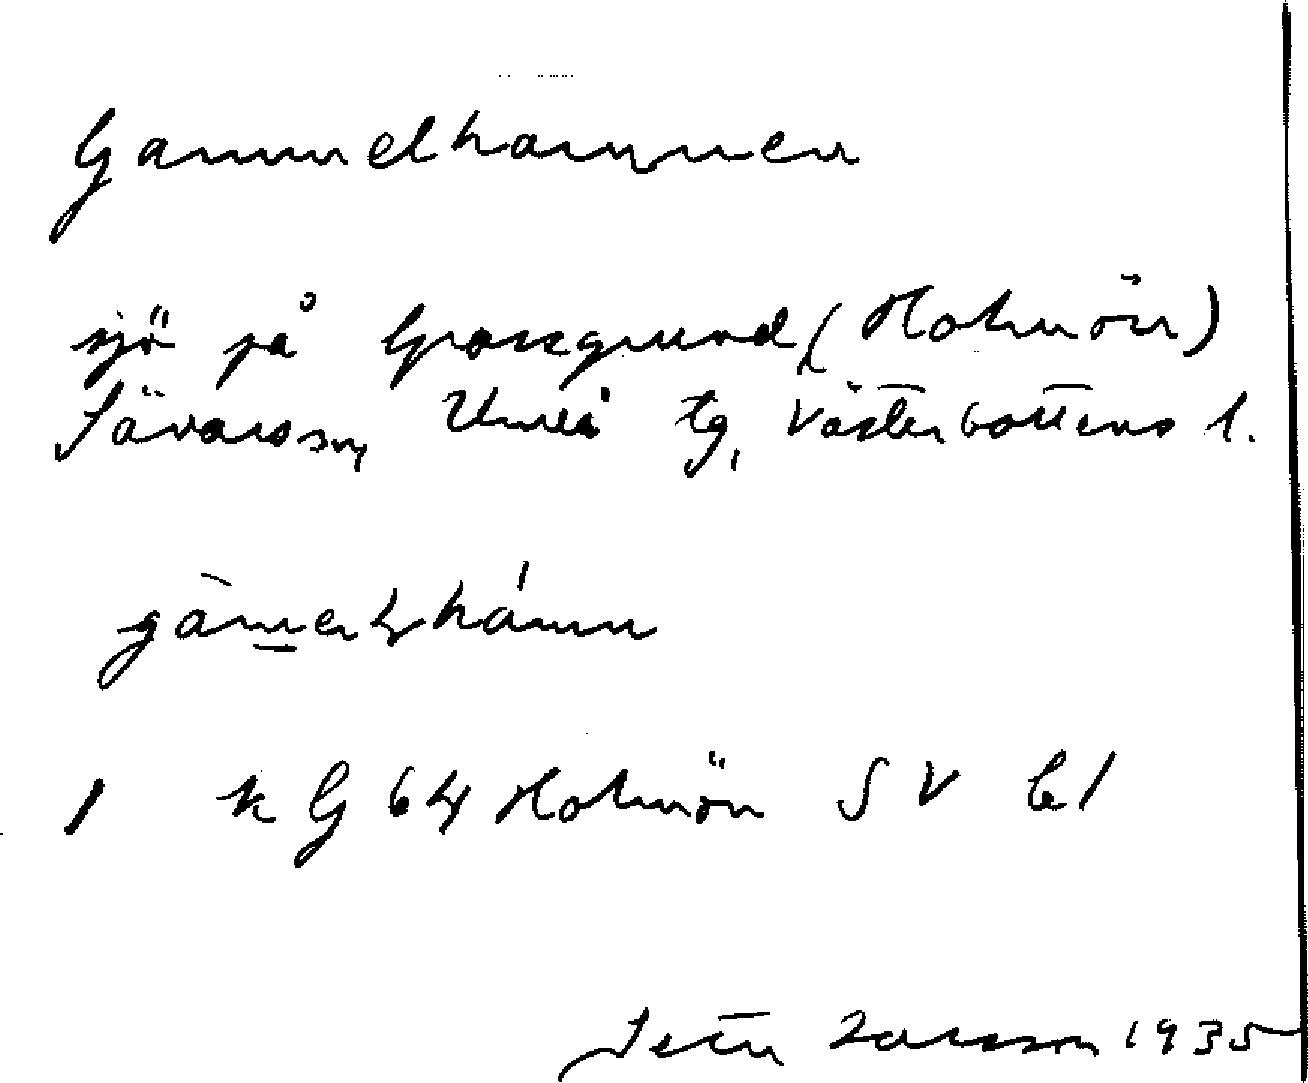 Gammelhamnen
sjö på Grossgrund (Holmön)
Sävars sn, Umeå tg, Västerbottens l.
1 k G 64 Holmön SV bl
Seth Larsson 1935